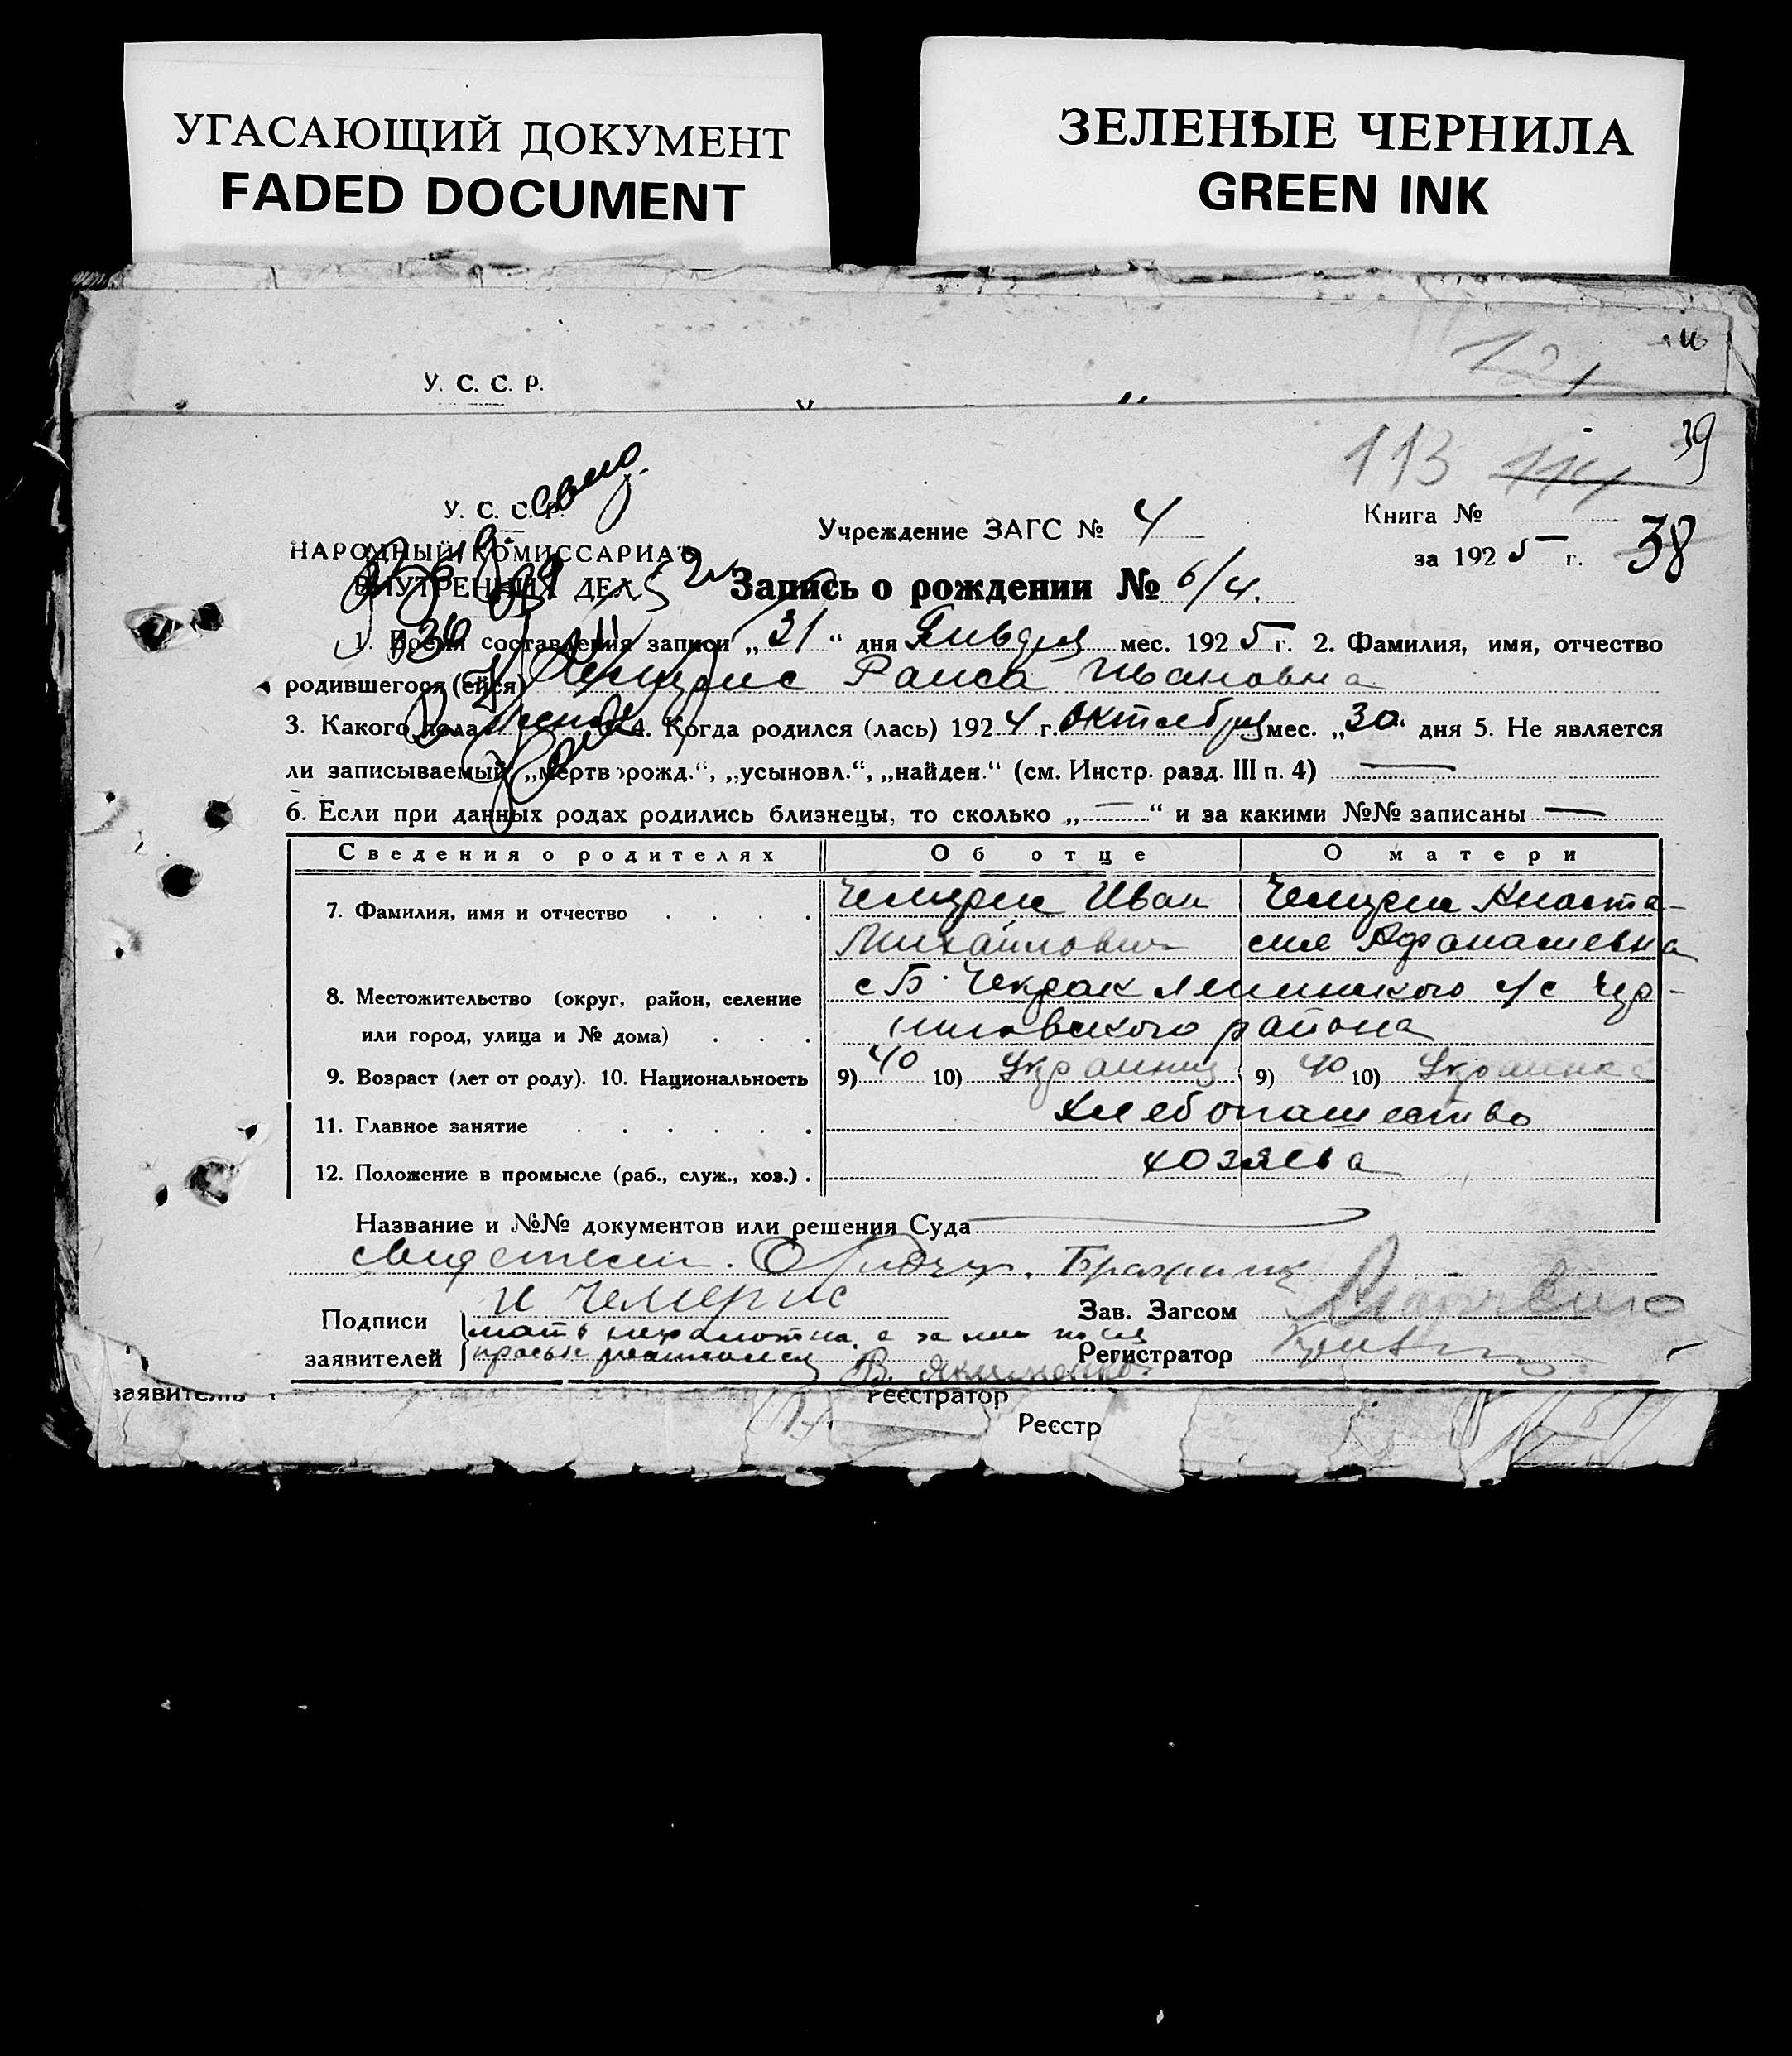 УГАСАЮЩИЙ ДОКУМЕНТ
FADED DOCUMENT
ЗЕЛЕНЫЕ ЧЕРНИЛА
GREEN INK
У. С. С. Р.
113
39
У. С. С. Р.
НАРОДНЫЙ КОМИССАРИАТ
ВНУТРЕННИХ ДЕЛ
Учреждение ЗАГС № 4
Книга №
за 1925 г. 38
Запись о рождении № 6/4.
1. Время составления записи „31“ дня Января мес. 1925 г. 2. Фамилия, имя, отчество
родившегося (ейся) Чемерис Раиса Ивановна
3. Какого пола женск 4. Когда родился (лась) 1924 г. Октября мес. „30“ дня 5. Не является
ли записываемый „мертворожд.“, „усыновл.“, „найден.“ (см. Инстр. разд. III п. 4) —
6. Если при данных родах родились близнецы, то сколько „—“ и за какими №№ записаны —
Сведения о родителях Об отце О матери
7. Фамилия, имя и отчество Чемерис Иван Чемерис Анаста-
Михайлович сия Афанасиевна
8. Местожительство (округ, район, селение с Б. Чекрак
или город, улица и № дома) района
9. Возраст (лет от роду). 10. Национальность 9) 40 10) Украинец 9) 40 10) Украинка
11. Главное занятие Хлебопашество
12. Положение в промысле (раб., служ., хоз.) хозяева
Название и №№ документов или решения Суда
свидетели.
Подписи И Чемерис Зав. Загсом
мать неграмотна, а за нее по ея
заявителей просьбе расписался Регистратор
В. Якименко
заявитель Реєстратор
Реєстр